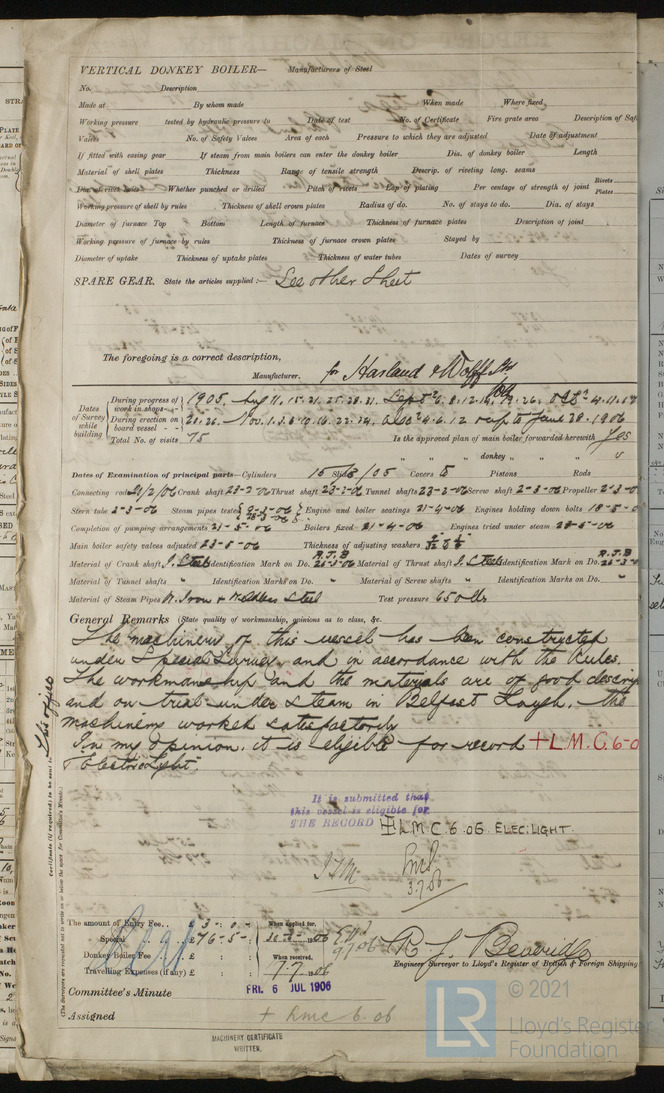 VERTICAL DONKEY BOILER— Manufacturers of Steel
No. Description
Made at By whom made When made Where fixed
Working pressure tested by hydraulic pressure to Date of test No. of Certificate Fire grate area Description of Saf
Valves No. of Safety Valves Area of each Pressure to which they are adjusted Date of adjustment
If fitted with easing gear If steam from main boilers can enter the donkey boiler Dia. of donkey boiler Length
Material of shell plates Thickness Range of tensile strength Descrip. of riveting long. seams
Dia. of rivet holes Whether punched or drilled Pitch of rivets Lap of plating Per centage of strength of joint Rivets Plates
Working pressure of shell by rules Thickness of shell crown plates Radius of do. No. of stays to do. Dia. of stays
Diameter of furnace Top Bottom Length of furnace Thickness of furnace plates Description of joint
Working pressure of furnace by rules Thickness of furnace crown plates Stayed by
Diameter of uptake Thickness of uptake plates Thickness of water tubes Dates of survey
SPARE GEAR. State the articles supplied:— See other Sheet
The foregoing is a correct description,
Manufacturer. for Harland & Wolff Ltd
Dates of Survey while building
During progress of work in shops - - 1905. Aug 11. 15. 21. 25. 28. 31. Sep
During erection on board vessel - - 21. 26. Nov. 1. 3. up to June 28. 1906
Total No. of visits 75 Is the approved plan of main boiler forwarded herewith Yes
" " " donkey " " "
Dates of Examination of principal parts—Cylinders Slides Covers Pistons Rods
Connecting rods 21/2/06 Crank shaft 23-2-06 Thrust shaft 23-2-06 Tunnel shafts 23-2-06 Screw shaft 2-3-06 Propeller 2-3-0
Stern tube 2-3-06 Steam pipes tested Engine and boiler seatings 21-4-06 Engines holding down bolts 18-5-0
Completion of pumping arrangements 21-5-06 Boilers fixed 21-4-06 Engines tried under steam 28-5-06
Main boiler safety valves adjusted 28-5-06 Thickness of adjusting washers
Material of Crank shaft I. Steel Identification Mark on Do. R.J.B 26-3-06 Material of Thrust shaft I. Steel Identification Mark on Do. R.J.B 26-3-0
Material of Tunnel shafts " Identification Marks on Do. " Material of Screw shafts " Identification Marks on Do. "
Material of Steam Pipes W. Iron & Weldless Steel Test pressure 650 lbs
General Remarks (State quality of workmanship, opinions as to class, &c.
The machinery of this vessel has been constructed
under Special Survey and in accordance with the Rules.
The workmanship and the materials are of good descrip
and on trial under steam in Belfast Lough. the
machinery worked satisfactorily
In my opinion. it is eligible for record + L.M.C. 6-0
& Electric Light.
It is submitted that
this vessel is eligible for
THE RECORD + L.M.C. 6.06 ELEC: LIGHT.
3.7.06
Certificate (if required) to be sent to This office
(The Surveyors are requested not to write on or below the space for Committee's Minute.)
The amount of Entry Fee.. £ 3 - : 0 : - When applied for,
Special .. £ 76 - 5 - 1906
Donkey Boiler Fee £ : : When received,
Travelling Expenses (if any) £ : : 7.7.1906
R. J. Beveridge
Engineer Surveyor to Lloyd's Register of British & Foreign Shipping
Committee's Minute FRI. 6 JUL 1906
Assigned + Lmc 6.06
MACHINERY CERTIFICATE
WRITTEN.
LR © 2021
Lloyd's Register
Foundation